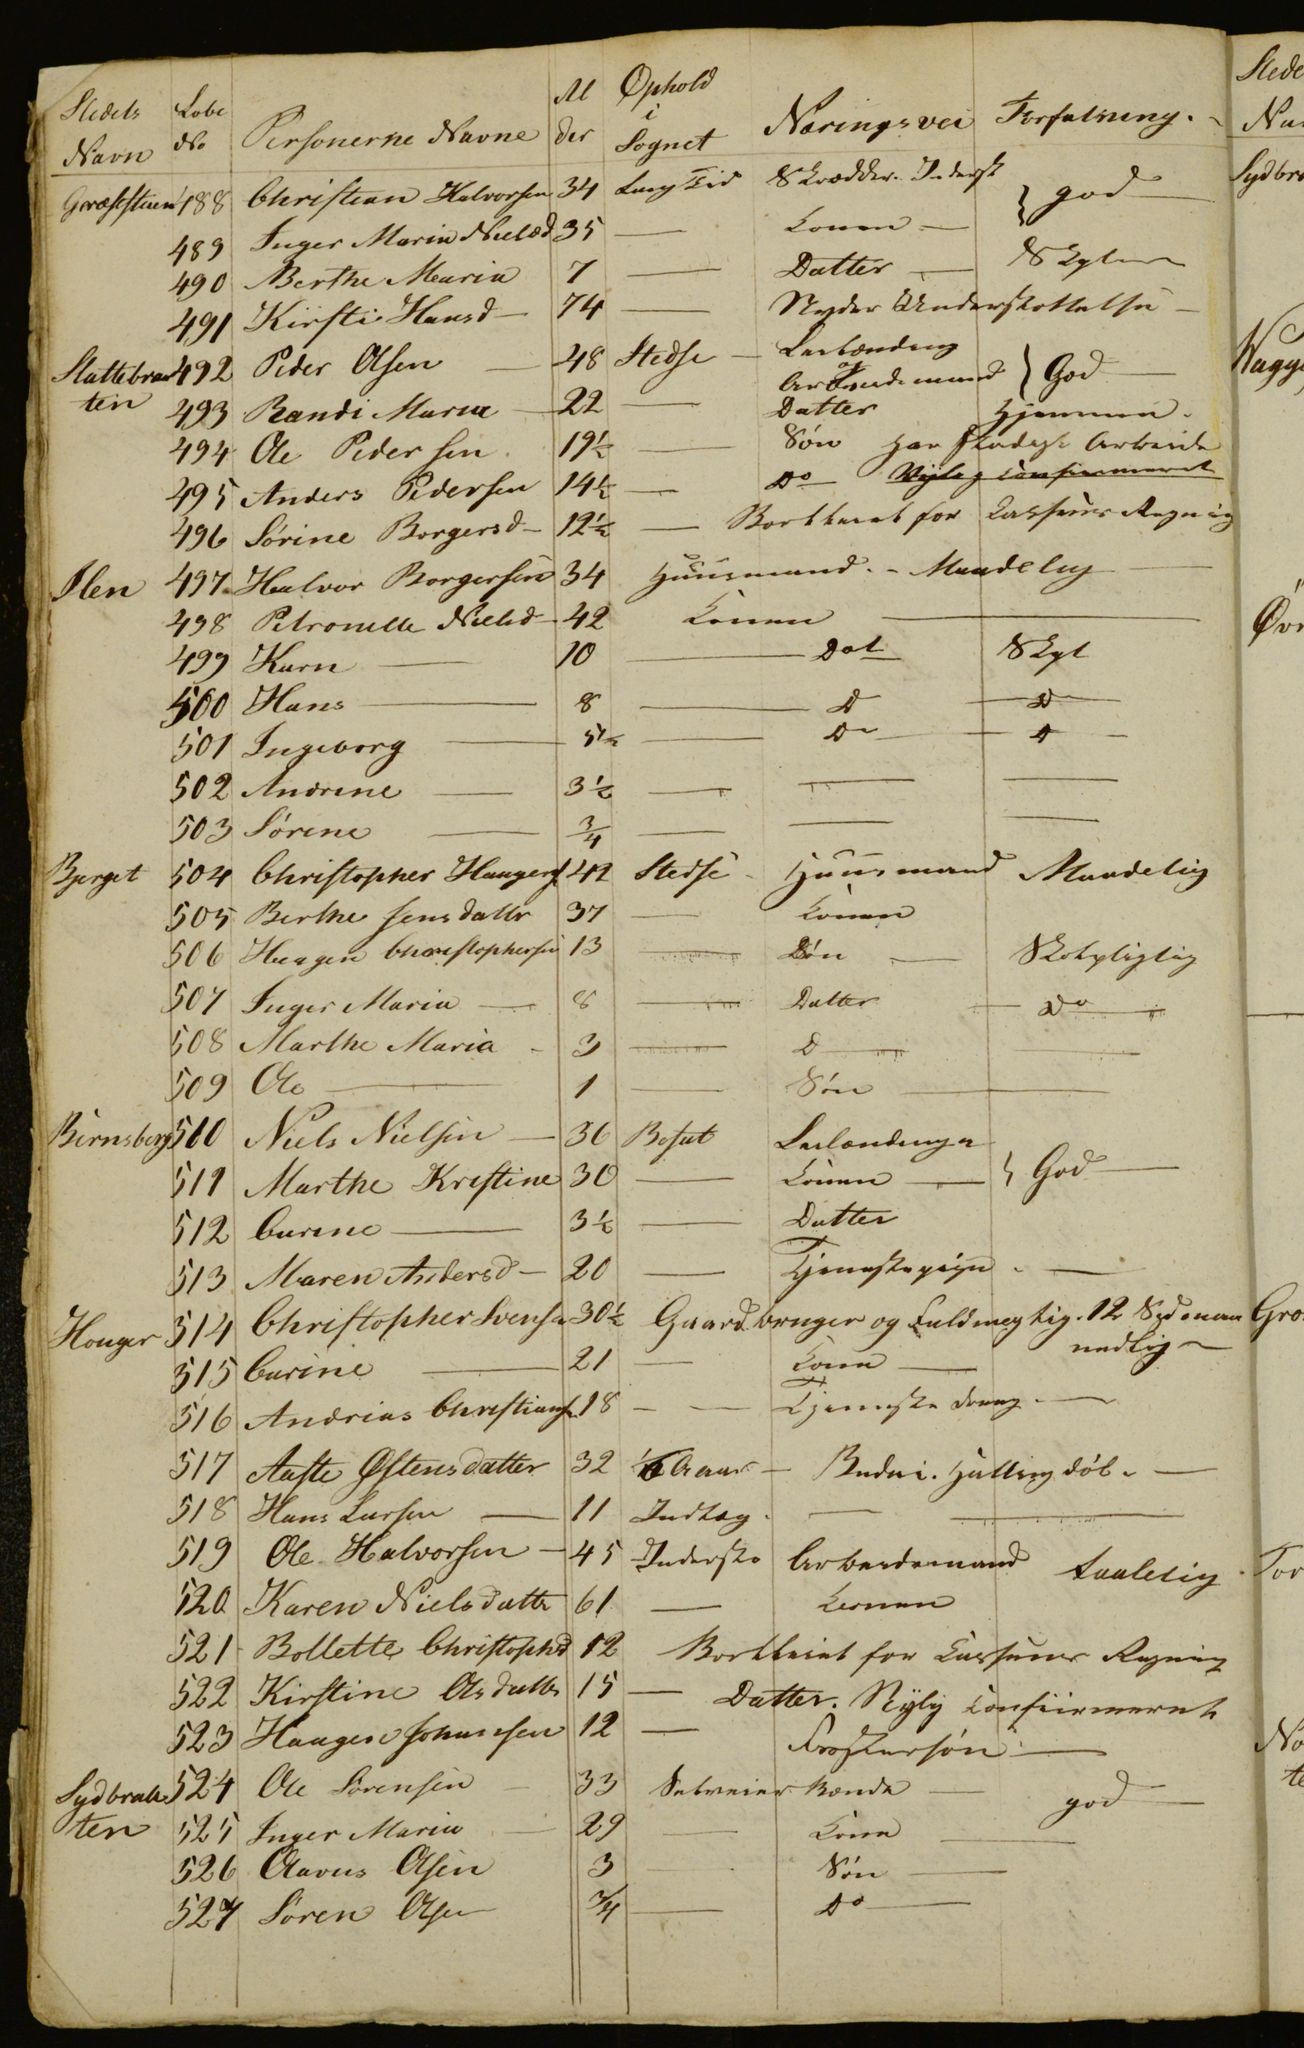 Stedets Navn Løbe No Personerne Navne Alder Ophold i Sognet Næringsvei Forfatning.
488 Christian Halvorsen 34 Lang Tid Skrædder. Inderst } god
489 Inger Maria Nielsd 35 — Konen —
490 Berthe Maria 7 — Datter — Skpl
491 Kirsti Hansd — 74 — Nyder Understøttelse —
Slattebraaten 492 Peder Olsen — 48 Stedse — Leilænding og Arbeidsmand } God —
493 Randi Maria — 22 — Datter Hjemme.
494 Ole Pedersen 19½ — Søn har stadigt Arbeide
495 Anders Pedersen 14½ — Do Nylig Confirmeret
496 Sørine Borgersd — 12½ — Bortleiet for Cassens Regning
Ilen 497 Halvor Borgersen 34 Huusmand. — Maadelig —
498 Petronelle Nielsd — 42 Konen —
499 Karn — 10 — Dat Skpl
500 Hans — 8 — D — D
501 Ingeborg — 5½ — Do — D —
502 Andrine — 3½ — — —
503 Sørine — 3/4 — — —
Bjerget 504 Christopher Haagens 42 Stedse — Huusmand Maadelig
505 Berthe Jensdattr 37 — Konen
506 Haagen Christophersen 13 — Søn — Skolepligtig
507 Inger Maria — 8 — Datter — Do —
508 Marthe Maria — 3 — D — —
509 Ole — 1 — Søn —
Birnsberg 510 Niels Nielsen — 36 Bosat Leilænding
511 Marthe Kristine 30 — Konen — } God —
512 Carine — 3½ — Datter
513 Maren Andersd — 20 — Tjenestepige — —
Houger 514 Christopher Svens 30½ Gaardbruger og Fuldmegtig. 12
515 Carine — 21 — Kone —
516 Andrias Christians 18 — — Tjeneste dreng. —
517 Aaste Østensdatter 32 ½ Aar — Budei. —
518 Hans Larsen — 11 Indtag. — —
519 Ole Halvorsen — 45 Inderste Arbeidsmand taalelig
520 Karen Nielsdattr 61 — Konen
521 Bollette Christophd 12 Bortleiet for Cassens Regning
522 Kirstine Olsdattr 15 — Datter. Nylig Confiirmeret
523 Haagen Johansen 12 — Fostersøn —
Sydbraaten 524 Ole Sørensen — 33 Selveier Bonde — god —
525 Inger Maria — 29 — Kone —
526 Olavus Olsen 3 — Søn —
527 Søren Olsen 3/4 — Do —